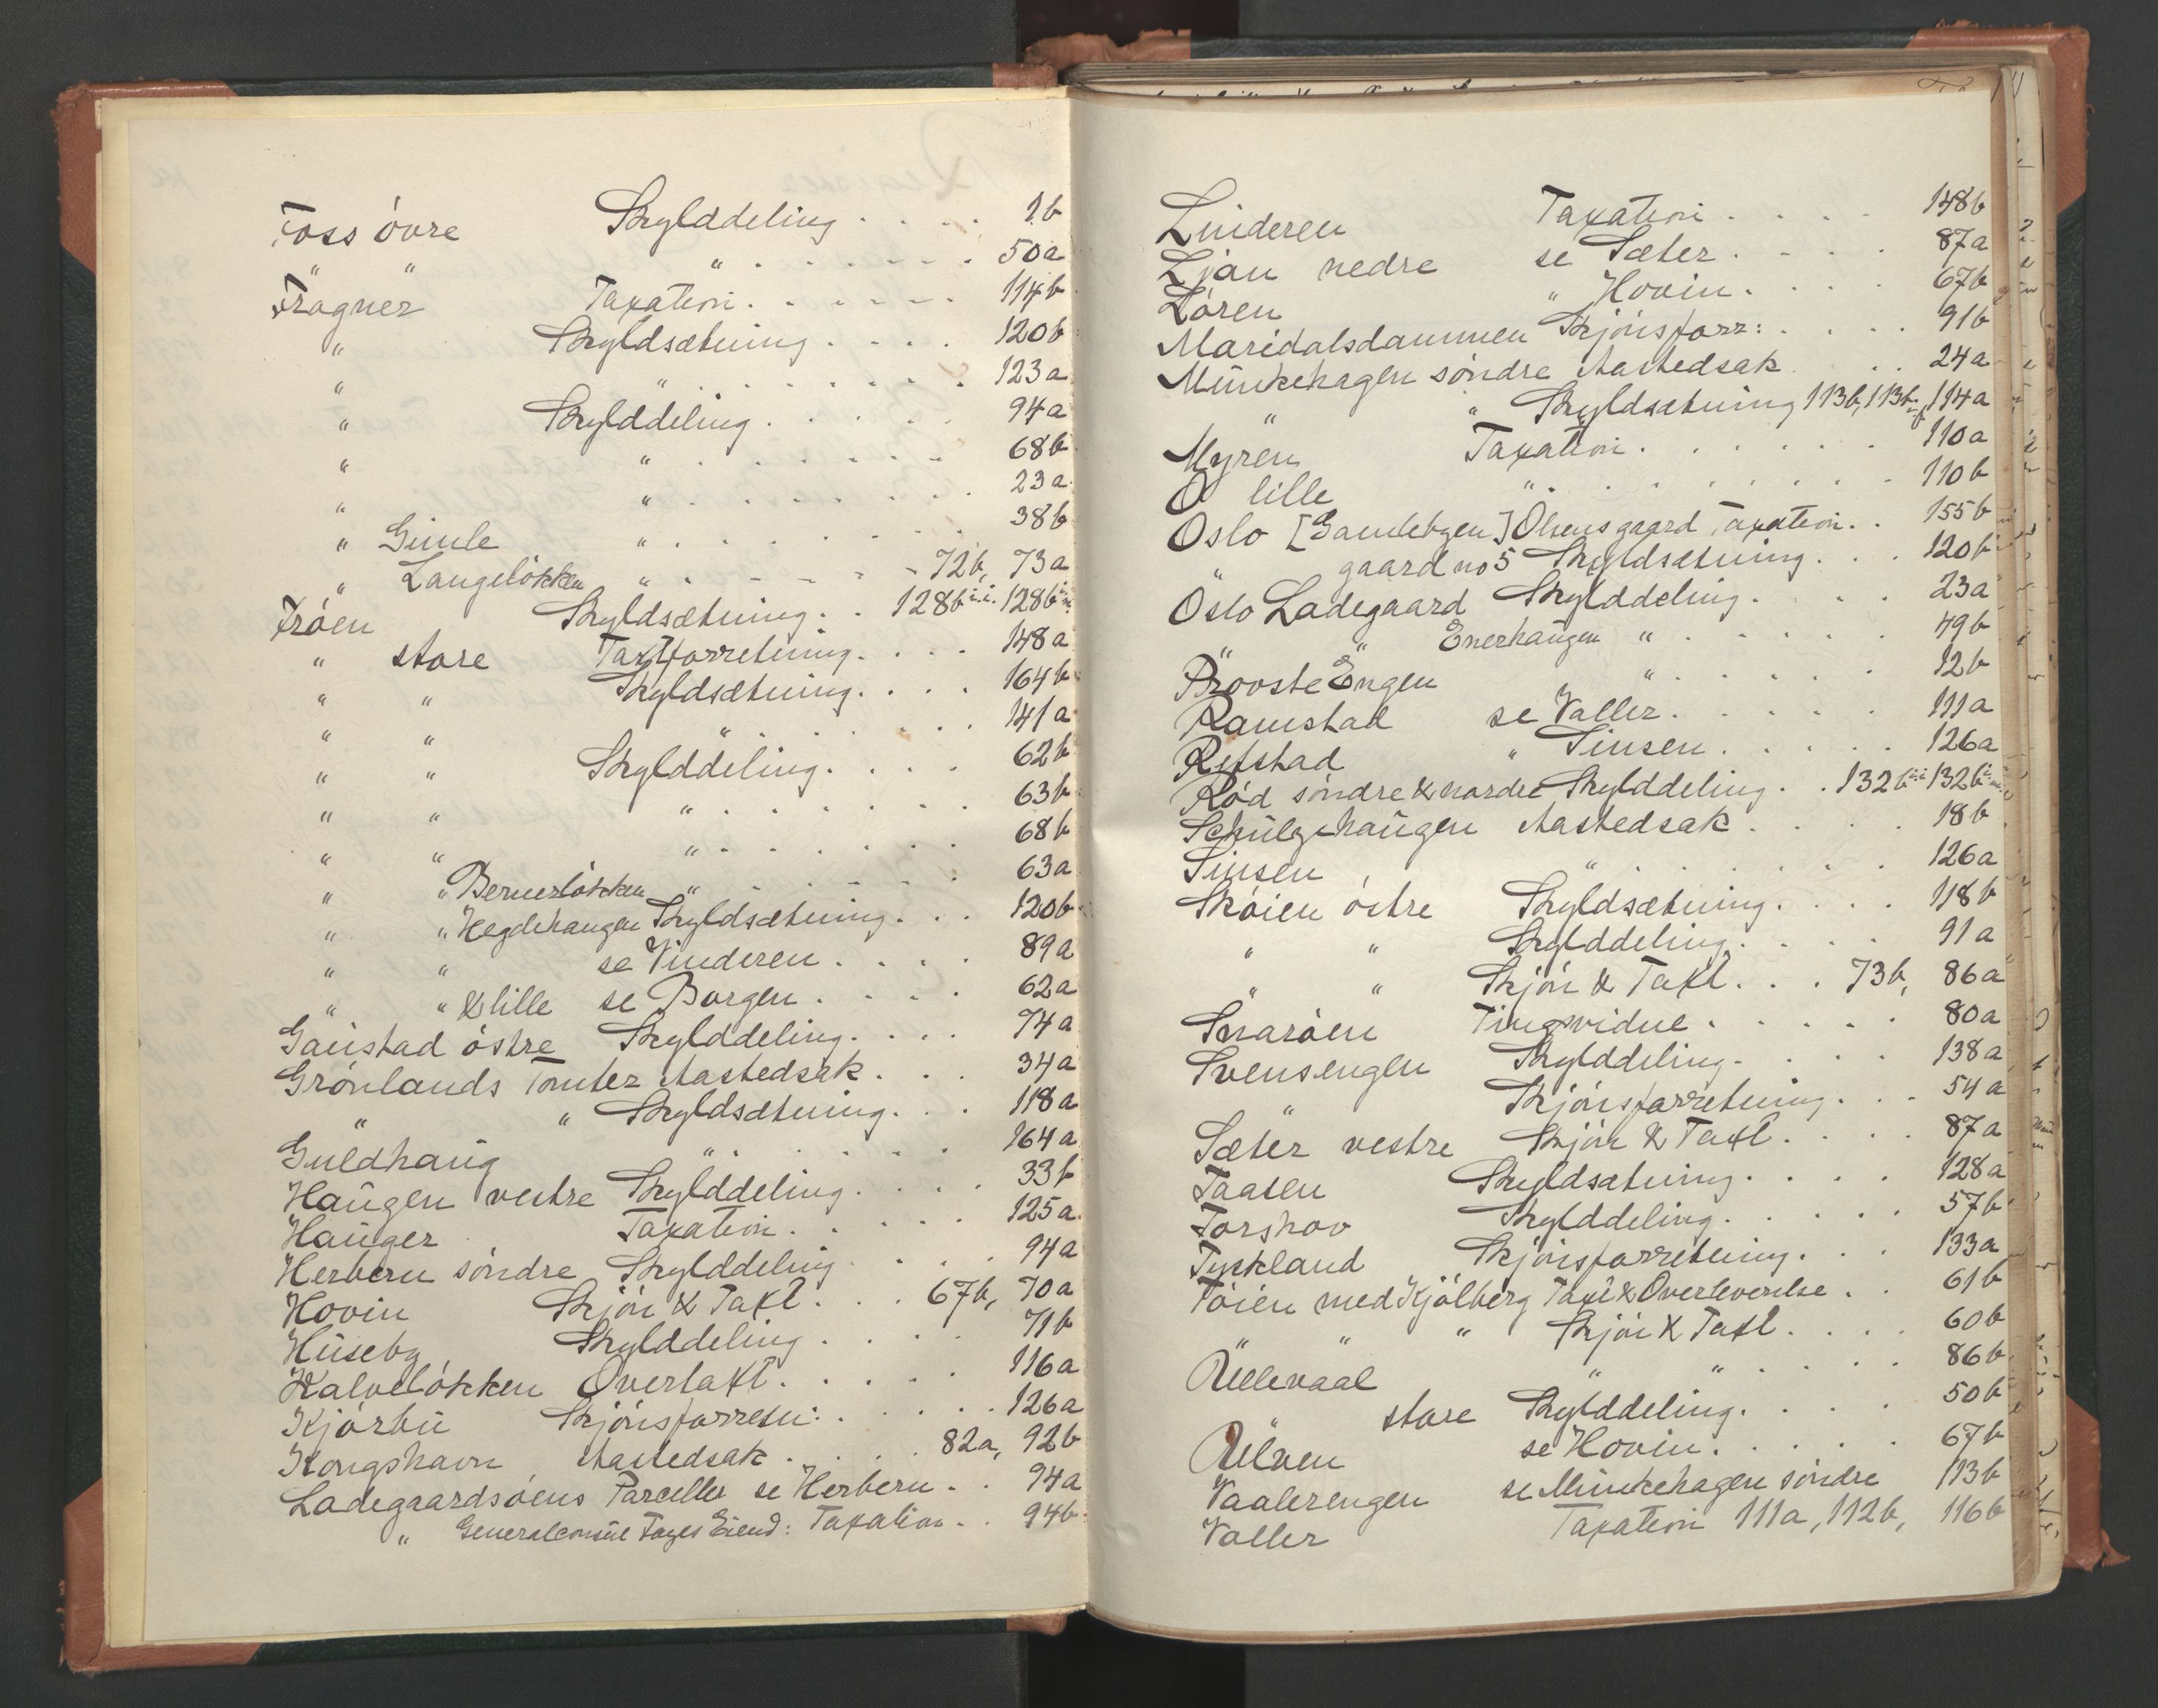 Foss övre Skylddeling . . . . 1b
" " " . . . . . . 50a
Frogner Taxation . . . . . 114b
" Skyldsætning . . . . 120b
" " . . . . . . . 123a
" Skylddeling . . . . . 94a
" " . . . . . . . 68b
" " . . . . . . . 23a
" Gimle " . . . . . . . 38b
" Langeløkken " . . . . . 72b, 73a
Frøen Skyldsætning . . 128b 128b
" store Taxtforretning . . . . 148a
" " Skyldsætning . . . . 164b
" " " . . . . . . 141a
" " Skylddeling . . . . 62b
" " " . . . . . . . 63b
" " " . . . . . . . 68b
" " Bernerløkken " . . . . . . 63a
" " Hegdehaugen Skyldsætning . . . 120b
" " se Vinderen . . . . 89a
" " & lille se Borgen . . . . 62a
Gaustad östre Skylddeling . . . . 74a
Grönlands Tomter Aastedsak . . . 34a
" " Skyldsætning . . . 118a
Guldhaug " . . . . . . 164a
Haugen vestre Skylddeling . . . . 33b
Hauger Taxation . . . . . 125a
Herbern söndre Skylddeling . . . . 94a
Hovin Skjön & Taxt . . . 67b, 70a
Huseby Skylddeling . . . . 71b
Kalveløkken Overtaxt . . . . . 116a
Kjörbu Skjönsforretn: . . . . . 126a
Kongshavn Aastedsak . . . . 82a, 92b
Ladegaardsøens Parceller se Herbern . . 94a
" Generalconsul Fayes Eiend: Taxation . . 94b
Linderen Taxation . . . . 148b
Ljan nedre se Sæter . . . . 87a
Lören " Hovin . . . . 67b
Maridalsdammen Skjönsforr: . . . . . 91b
Munkehagen söndre Aastedsak . . 24a
" " Skyldsætning 113b, 113b, 114a
Myren Taxation . . . . . . 110a
Ö lille " . . . . . . . . 110b
Oslo [Gamlebyen] Olsens gaard Taxation . . 155b
" gaard no 5 Skyldsætning . . . 120b
Oslo Ladegaard Skylddeling . . . . 23a
" " Enerhaugen " . . . . . 49b
Provste Engen " . . . . . . 12b
Ramstad se Valler . . . . . 111a
Refstad " Sinsen . . . . . 126a
Röd söndre & nordre Skylddeling . . 132b 132b
Schulzehaugen Aastedsak . . . . 18b
Sinsen " . . . . . . . 126a
Skøien östre Skyldsætning . . . . 118b
" " Skylddeling . . . . 91a
" " Skjön & Taxt . . . 73b, 86a
Snarøen Tingsvidne . . . . . 80a
Svensengen Skylddeling . . . . 138a
" Skjönsforretning . . . 54a
Sæter vestre Skjön & Taxt . . . . 87a
Taasen Skyldsætning . . . . 128a
Torshov Skylddeling . . . . . 57b
Tyskland Skjönsforretning . . . 133a
Töien med Kjölberg Taxt & Overleverelse . . 61b
" " " Skjön & Taxt . . . . 60b
Ullevaal " " . . . . . 86b
" store Skylddeling . . . . 50b
Ulven se Hovin . . . . . 67b
Vaalerengen se Munkehagen söndre 113b
Valler Taxation 111a, 112b, 116b